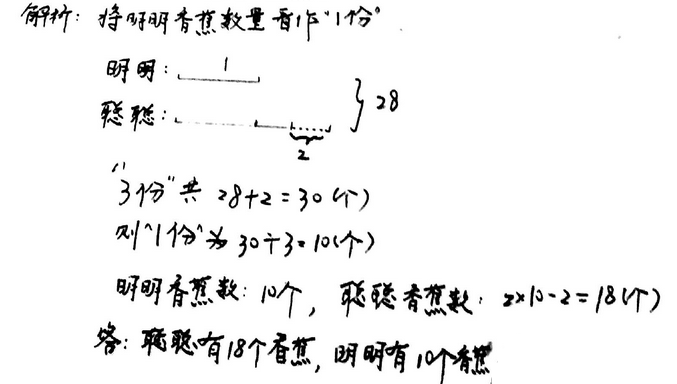 解析：将明明香蕉数量看作"1份"
明明： 1
聪聪：
} 28
2
"3份"共 28+2=30(个)
则"1份"为 30÷3=10(个)
明明香蕉数：10个，聪聪香蕉数：2×10-2=18(个)
答：聪聪有18个香蕉，明明有10个香蕉